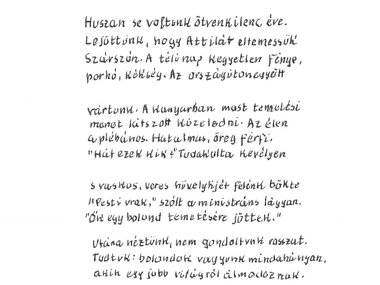 Huszan se voltunk ötvenkilenc éve.
Lejöttünk, hogy Attilát eltemessük
Szárszón. A télinap kegyetlen fénye,
porkó, kökség. Az országúton együtt
vártunk. A kanyarban most temetési
menet látszott közeledni. Az élen
a plébános. Hatalmas, öreg férfi.
"Hát ezek kik?" Tudakolta kevélyen
s vaskos, veres hüvelykjét felénk bökte
"Pesti urak," szólt a ministráns lágyan.
"Ők egy bolond temetésére jöttek."
Utána néztünk, nem gondoltunk rosszat.
Tudtuk: bolondok vagyunk mindahányan,
akik egy jobb világról álmodoznak.